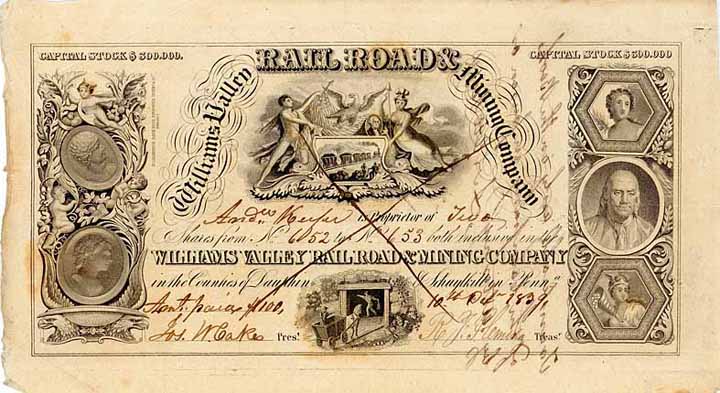 CAPITAL STOCK $ 300.000.
CAPITAL STOCK $ 300.000
Williams Valley RAIL ROAD & Mining Company
is Proprietor of Two
Shares from No. 652 to No. 653 both inclusive in the
WILLIAMS VALLEY RAIL ROAD & MINING COMPANY
in the Counties of Dauphin & Schuylkill in Penna
Amt. paid $100, 10th Octr 1839.
Jos. W. Cake Prest. R. J. Fleming Treasr.